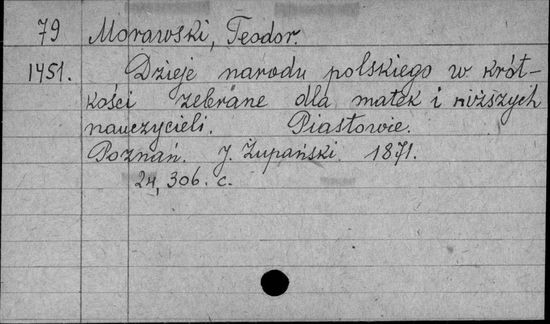 79 Morawski, Teodor.
1451. Dzieje narodu polskiego w krót-
kości zebrane dla matek i niższych
nauczycieli. Piastowie.
Poznań. J. Żupański. 1871.
24, 306. c.